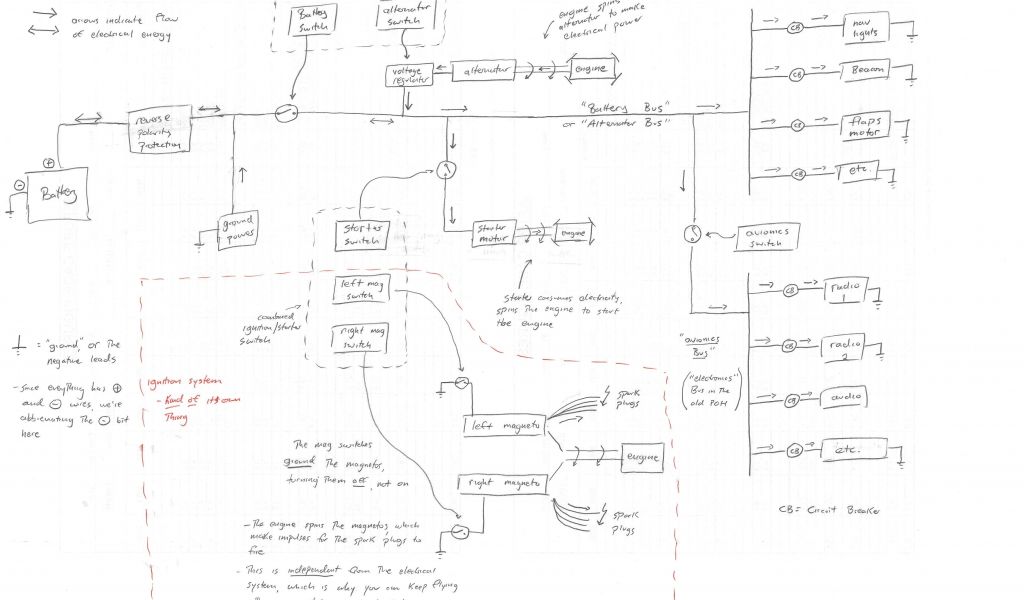 arrows indicate flow
of electrical energy
Battery
switch
alternator
switch
engine spins
alternator to make
electrical power
voltage
regulator
alternator
engine
"Battery Bus"
or "Alternator Bus"
reverse
polarity
protection
+
-
Battery
ground
power
starter
switch
starter
motor
engine
starter consumes electricity,
spins the engine to start
the engine
left mag
switch
right mag
switch
combined
ignition/starter
switch
avionics
switch
CB
nav
lights
CB
Beacon
CB
flaps
motor
CB
etc.
CB
radio
1
CB
radio
2
CB
audio
CB
etc.
"avionics
Bus"
("electronics"
Bus in the
old POH)
CB = Circuit Breaker
= "ground," or the
negative leads
- since everything has +
and - wires, we're
abbreviating the - bit
here
ignition system
- Kind of it's own
Thing
left magneto
spark
plugs
engine
right magneto
spark
plugs
The mag switches
ground the magnetos,
turning them off, not on
- The engine spins the magnetos, which
make impulses for the spark plugs to
fire
- This is independent from the electrical
system, which is why you can keep flying